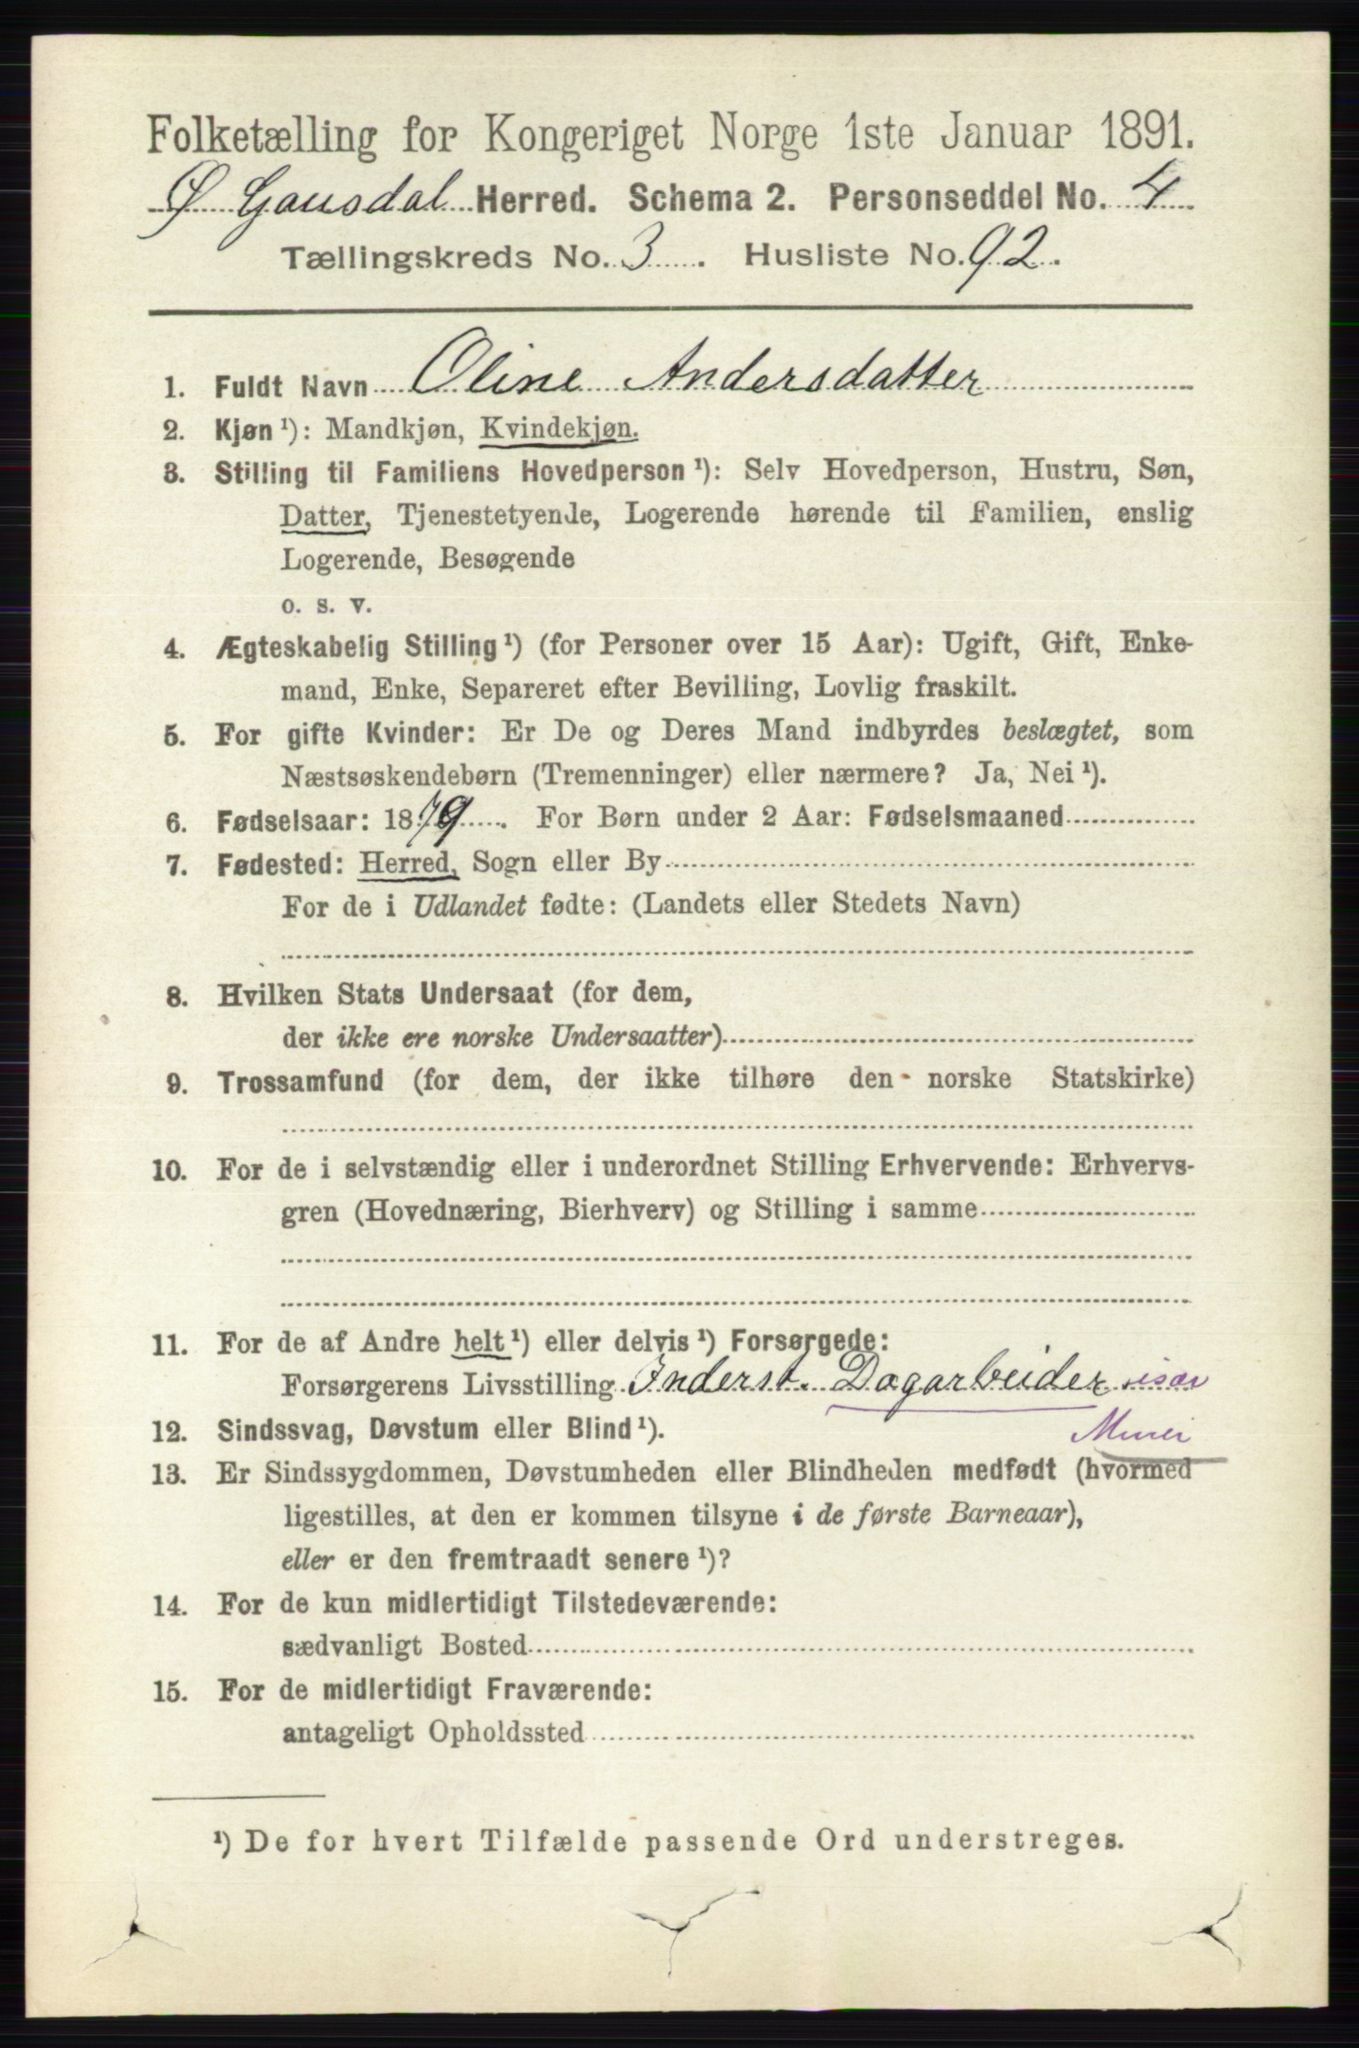 Folketælling for Kongeriget Norge 1ste Januar 1891.
Ø. Gausdal Herred. Schema 2. Personseddel No. 4
Tællingskreds No. 3. Husliste No. 92.
1. Fuldt Navn Oline Andersdatter
2. Kjøn ¹): Mandkjøn, Kvindekjøn.
3. Stilling til Familiens Hovedperson ¹): Selv Hovedperson, Hustru, Søn,
Datter, Tjenestetyende, Logerende hørende til Familien, enslig
Logerende, Besøgende
o. s. v.
4. Ægteskabelig Stilling ¹) (for Personer over 15 Aar): Ugift, Gift, Enke-
mand, Enke, Separeret efter Bevilling, Lovlig fraskilt.
5. For gifte Kvinder: Er De og Deres Mand indbyrdes beslægtet, som
Næstsøskendebørn (Tremenninger) eller nærmere? Ja, Nei ¹).
6. Fødselsaar: 1879. For Børn under 2 Aar: Fødselsmaaned
7. Fødested: Herred, Sogn eller By
For de i Udlandet fødte: (Landets eller Stedets Navn)
8. Hvilken Stats Undersaat (for dem,
der ikke ere norske Undersaatter)
9. Trossamfund (for dem, der ikke tilhøre den norske Statskirke)
10. For de i selvstændig eller i underordnet Stilling Erhvervende: Erhvervs-
gren (Hovednæring, Bierhverv) og Stilling i samme
11. For de af Andre helt ¹) eller delvis ¹) Forsørgede:
Forsørgerens Livsstilling Inderst. Dagarbeider især
12. Sindssvag, Døvstum eller Blind ¹). Murer
13. Er Sindssygdommen, Døvstumheden eller Blindheden medfødt (hvormed
ligestilles, at den er kommen tilsyne i de første Barneaar),
eller er den fremtraadt senere ¹)?
14. For de kun midlertidigt Tilstedeværende:
sædvanligt Bosted
15. For de midlertidigt Fraværende:
antageligt Opholdssted
¹) De for hvert Tilfælde passende Ord understreges.